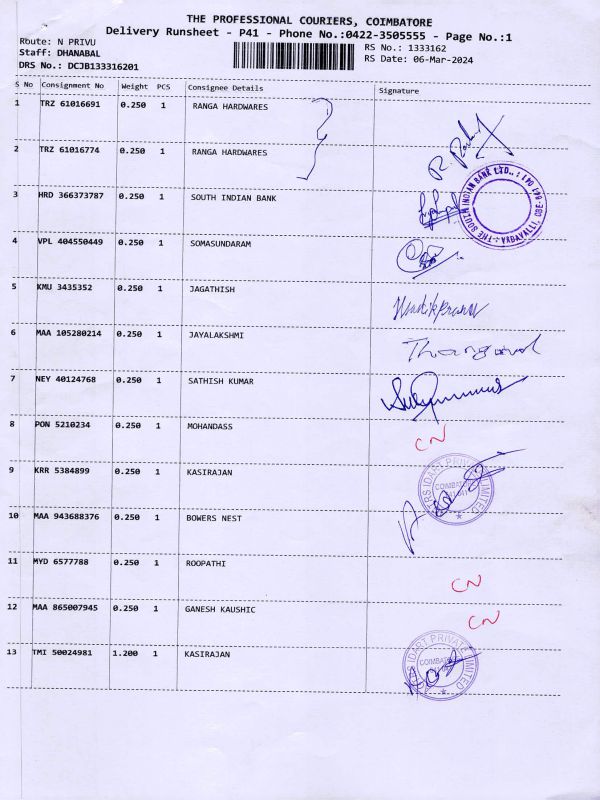 THE PROFESSIONAL COURIERS, COIMBATORE
Delivery Runsheet - P41 - Phone No.:0422-3505555 - Page No.:1
Route: N PRIVU RS No.: 1333162
Staff: DHANABAL RS Date: 06-Mar-2024
DRS No.: DCJB133316201
S No Consignment No Weight PCS Consignee Details Signature
1 TRZ 61016691 0.250 1 RANGA HARDWARES
2 TRZ 61016774 0.250 1 RANGA HARDWARES
3 HRD 366373787 0.250 1 SOUTH INDIAN BANK
THE SOUTH INDIAN BANK LTD.,
VADAVALLI, CBE - 641 041
4 VPL 404550449 0.250 1 SOMASUNDARAM
5 KMU 3435352 0.250 1 JAGATHISH
6 MAA 105280214 0.250 1 JAYALAKSHMI
7 NEY 40124768 0.250 1 SATHISH KUMAR
8 PON 5210234 0.250 1 MOHANDASS CN
9 KRR 5384899 0.250 1 KASIRAJAN
TRS IDART PRIVATE LIMITED
COIMBATORE
10 MAA 943688376 0.250 1 BOWERS NEST
11 MYD 6577788 0.250 1 ROOPATHI CN
12 MAA 865007945 0.250 1 GANESH KAUSHIC CN
13 TMI 50024981 1.200 1 KASIRAJAN
TRS IDART PRIVATE LIMITED
COIMBATORE